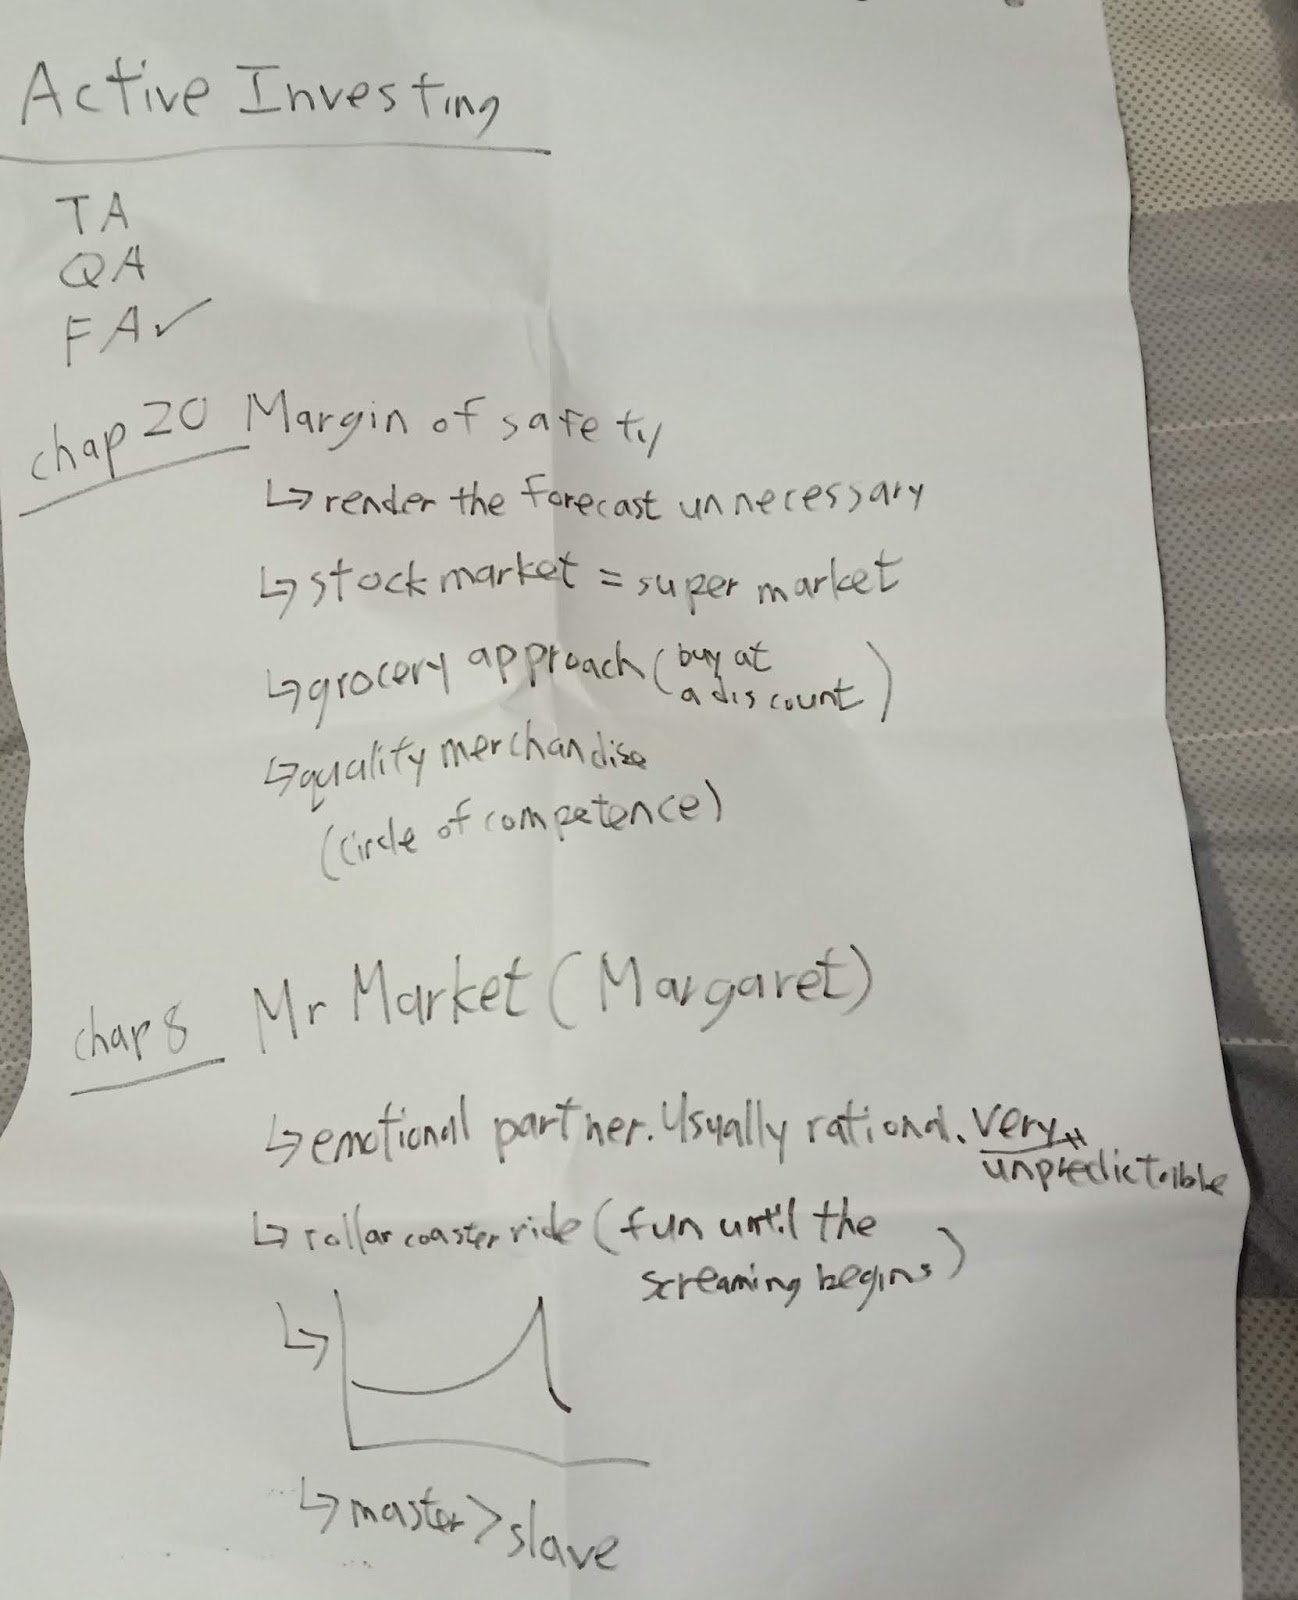 Active Investing
TA
QA
FA✓
chap 20 Margin of safety
↳ render the forecast unnecessary
↳ stock market = super market
↳ grocery approach (buy at
a discount)
↳ quality merchandise
(circle of competence)
chap 8 Mr Market (Margaret)
↳ emotional partner. Usually rational. very
unpredictable
↳ rollar coaster ride (fun until the
screaming begins)
↳
↳ master > slave